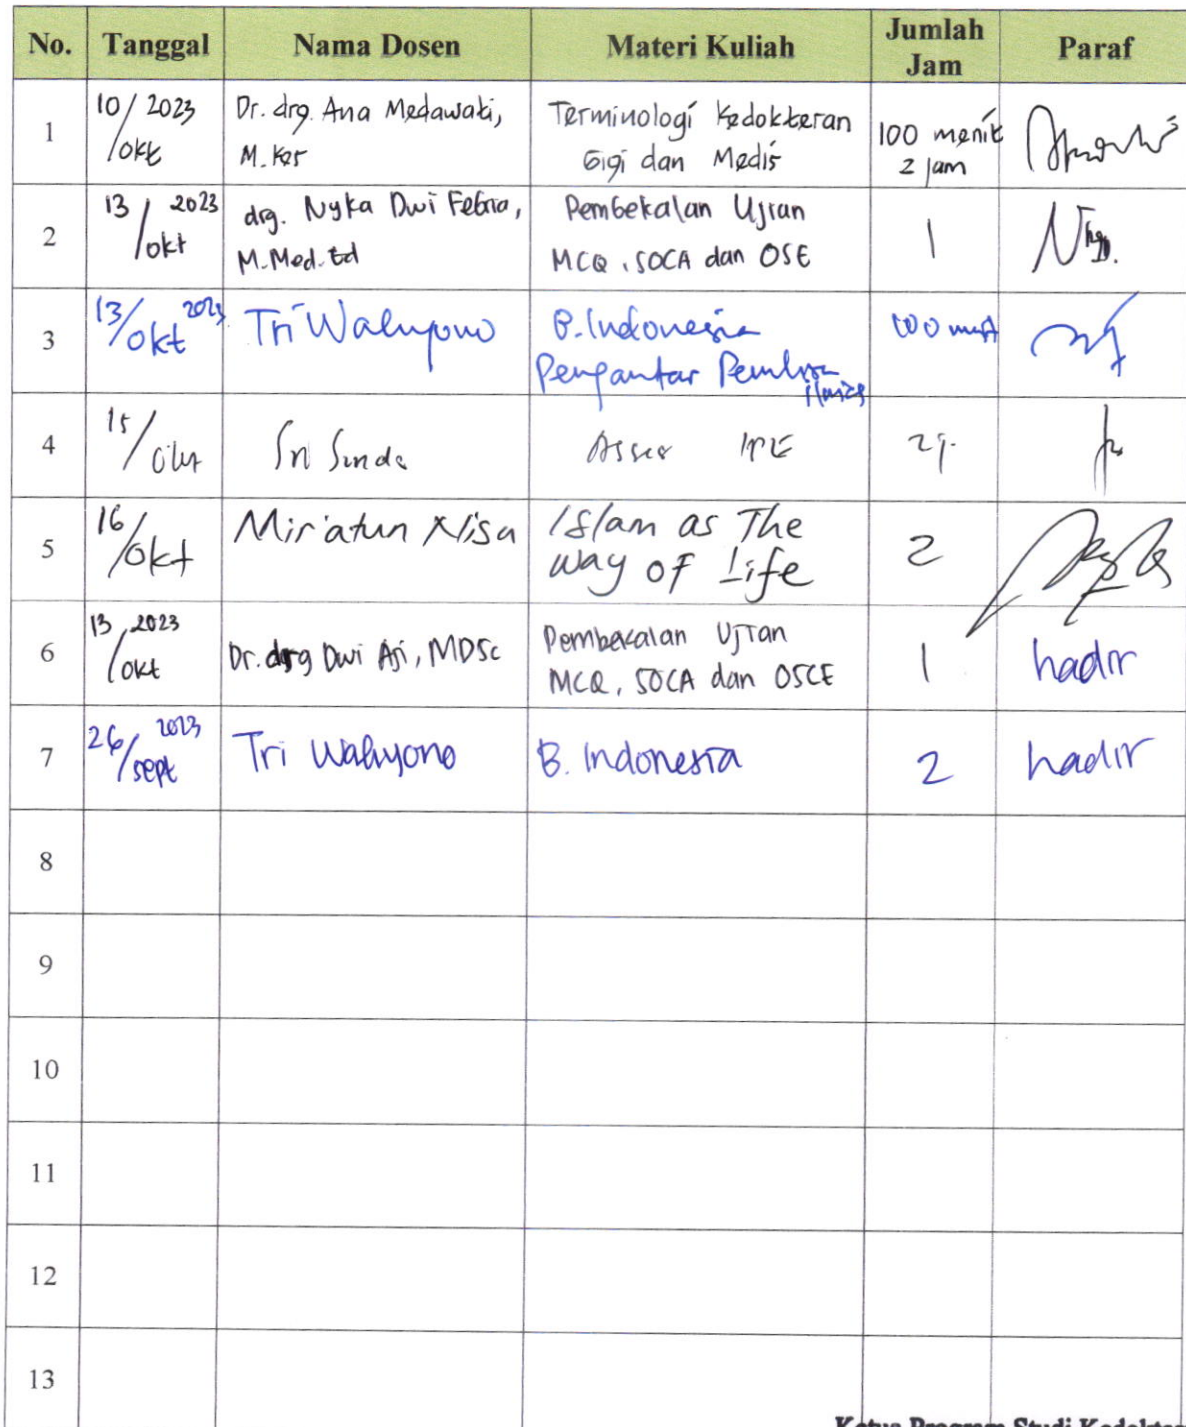 No. Tanggal Nama Dosen Materi Kuliah Jumlah Jam Paraf
1 10/okt 2023 Dr. drg. Ana Medawati, M.Kes Terminologi Kedokteran Gigi dan Medis 100 menit 2 jam
2 13/okt 2023 drg. Nyka Dwi Febria, M.Med.Ed Pembekalan Ujian MCQ, SOCA dan OSE 1
3 13/okt 2023 Tri Waluyono B. Indonesia Pengantar 100
4 15/ Sri 
5 16/okt Mir'atun Nisa Islam as The Way of Life 2
6 13/okt 2023 Dr. drg Dwi Aji, MDSc Pembekalan Ujian MCQ, SOCA dan OSCE 1 hadir
7 26/sept 2023 Tri Wahyono B. Indonesia 2 hadir
8
9
10
11
12
13
Ketua Program Studi